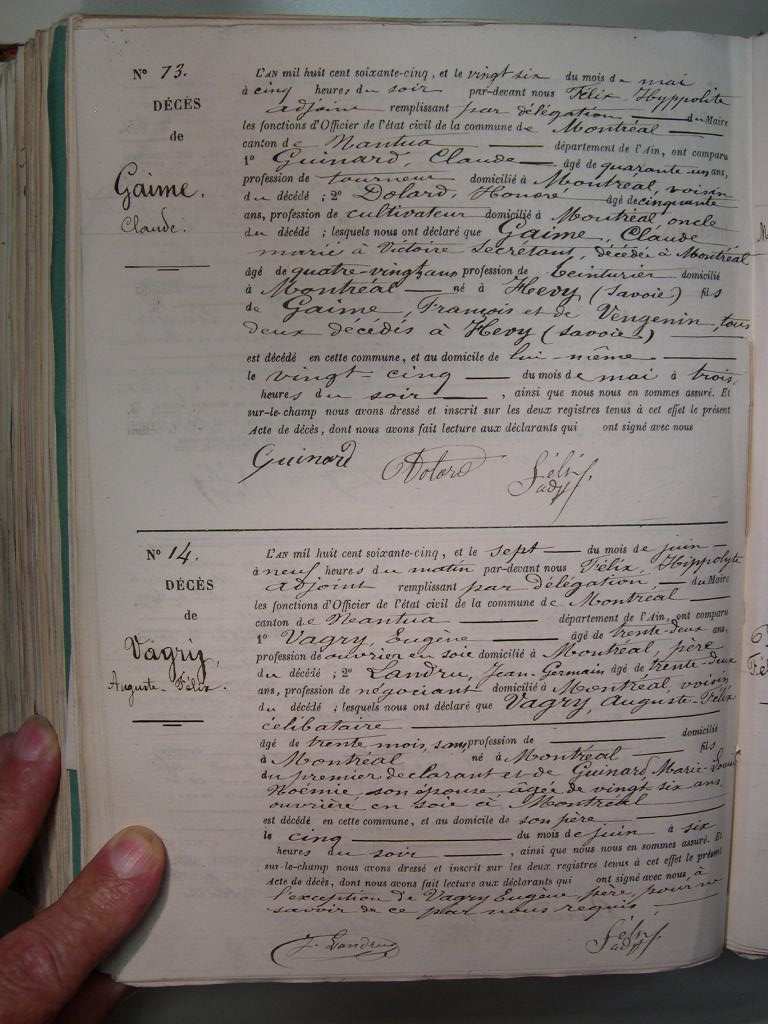 N° 13.
DÉCÈS
de
Gaime.
Claude.
L'AN mil huit cent soixante-cinq, et le vingt six du mois de mai
à cinq heures du soir par-devant nous Félix, Hyppolite
adjoint remplissant par délégation du Maire
les fonctions d'Officier de l'état civil de la commune de Montréal
canton de Nantua département de l'Ain, ont comparu
1° Guinard, Claude âgé de quarante-un ans,
profession de tourneur domicilié à Montréal, voisin
du décédé ; 2° Dolard, Honoré, âgé de cinquante
ans, profession de cultivateur domicilié à Montréal, oncle
du décédé ; lesquels nous ont déclaré que Gaime, Claude
marié à Victoire Secrétant, décédée à Montréal
âgé de quatre-vingt ans profession de teinturier domicilié
à Montréal né à Hevy (Savoie) fils
de Gaime, François et de Vengenin, tous
deux décédés à Hevy (Savoie)
est décédé en cette commune, et au domicile de lui-même
le vingt-cinq du mois de mai à trois
heures du soir , ainsi que nous nous en sommes assuré. Et
sur-le-champ nous avons dressé et inscrit sur les deux registres tenus à cet effet le présent
Acte de décès, dont nous avons fait lecture aux déclarants qui ont signé avec nous
Guinard Dolard Félix
adj
N° 14.
DÉCÈS
de
Vagry,
Auguste-Félix.
L'AN mil huit cent soixante-cinq, et le sept du mois de juin
à neuf heures du matin par-devant nous Félix, Hippolyte
adjoint remplissant par délégation du Maire
les fonctions d'Officier de l'état civil de la commune de Montréal
canton de Nantua département de l'Ain, ont comparu
1° Vagry, Eugène âgé de trente-deux ans,
profession de ouvrier en soie domicilié à Montréal, père
du décédé ; 2° Landru, Jean-Germain âgé de trente-deux
ans, profession de négociant domicilié à Montréal, voisin
du décédé ; lesquels nous ont déclaré que Vagry, Auguste-Félix
célibataire
âgé de trente mois, sans profession de domicilié
à Montréal né à Montréal fils
du premier déclarant et de Guinard, Marie-Louise
Noëmie, son épouse, âgée de vingt six ans,
ouvrière en soie à Montréal
est décédé en cette commune, et au domicile de son père
le cinq du mois de juin à six
heures du soir , ainsi que nous nous en sommes assuré. Et
sur-le-champ nous avons dressé et inscrit sur les deux registres tenus à cet effet le présent
Acte de décès, dont nous avons fait lecture aux déclarants qui ont signé avec nous, à
l'exception de Vagry Eugène père, pour ne
savoir de ce par nous requis.
J. Landru Félix
adj